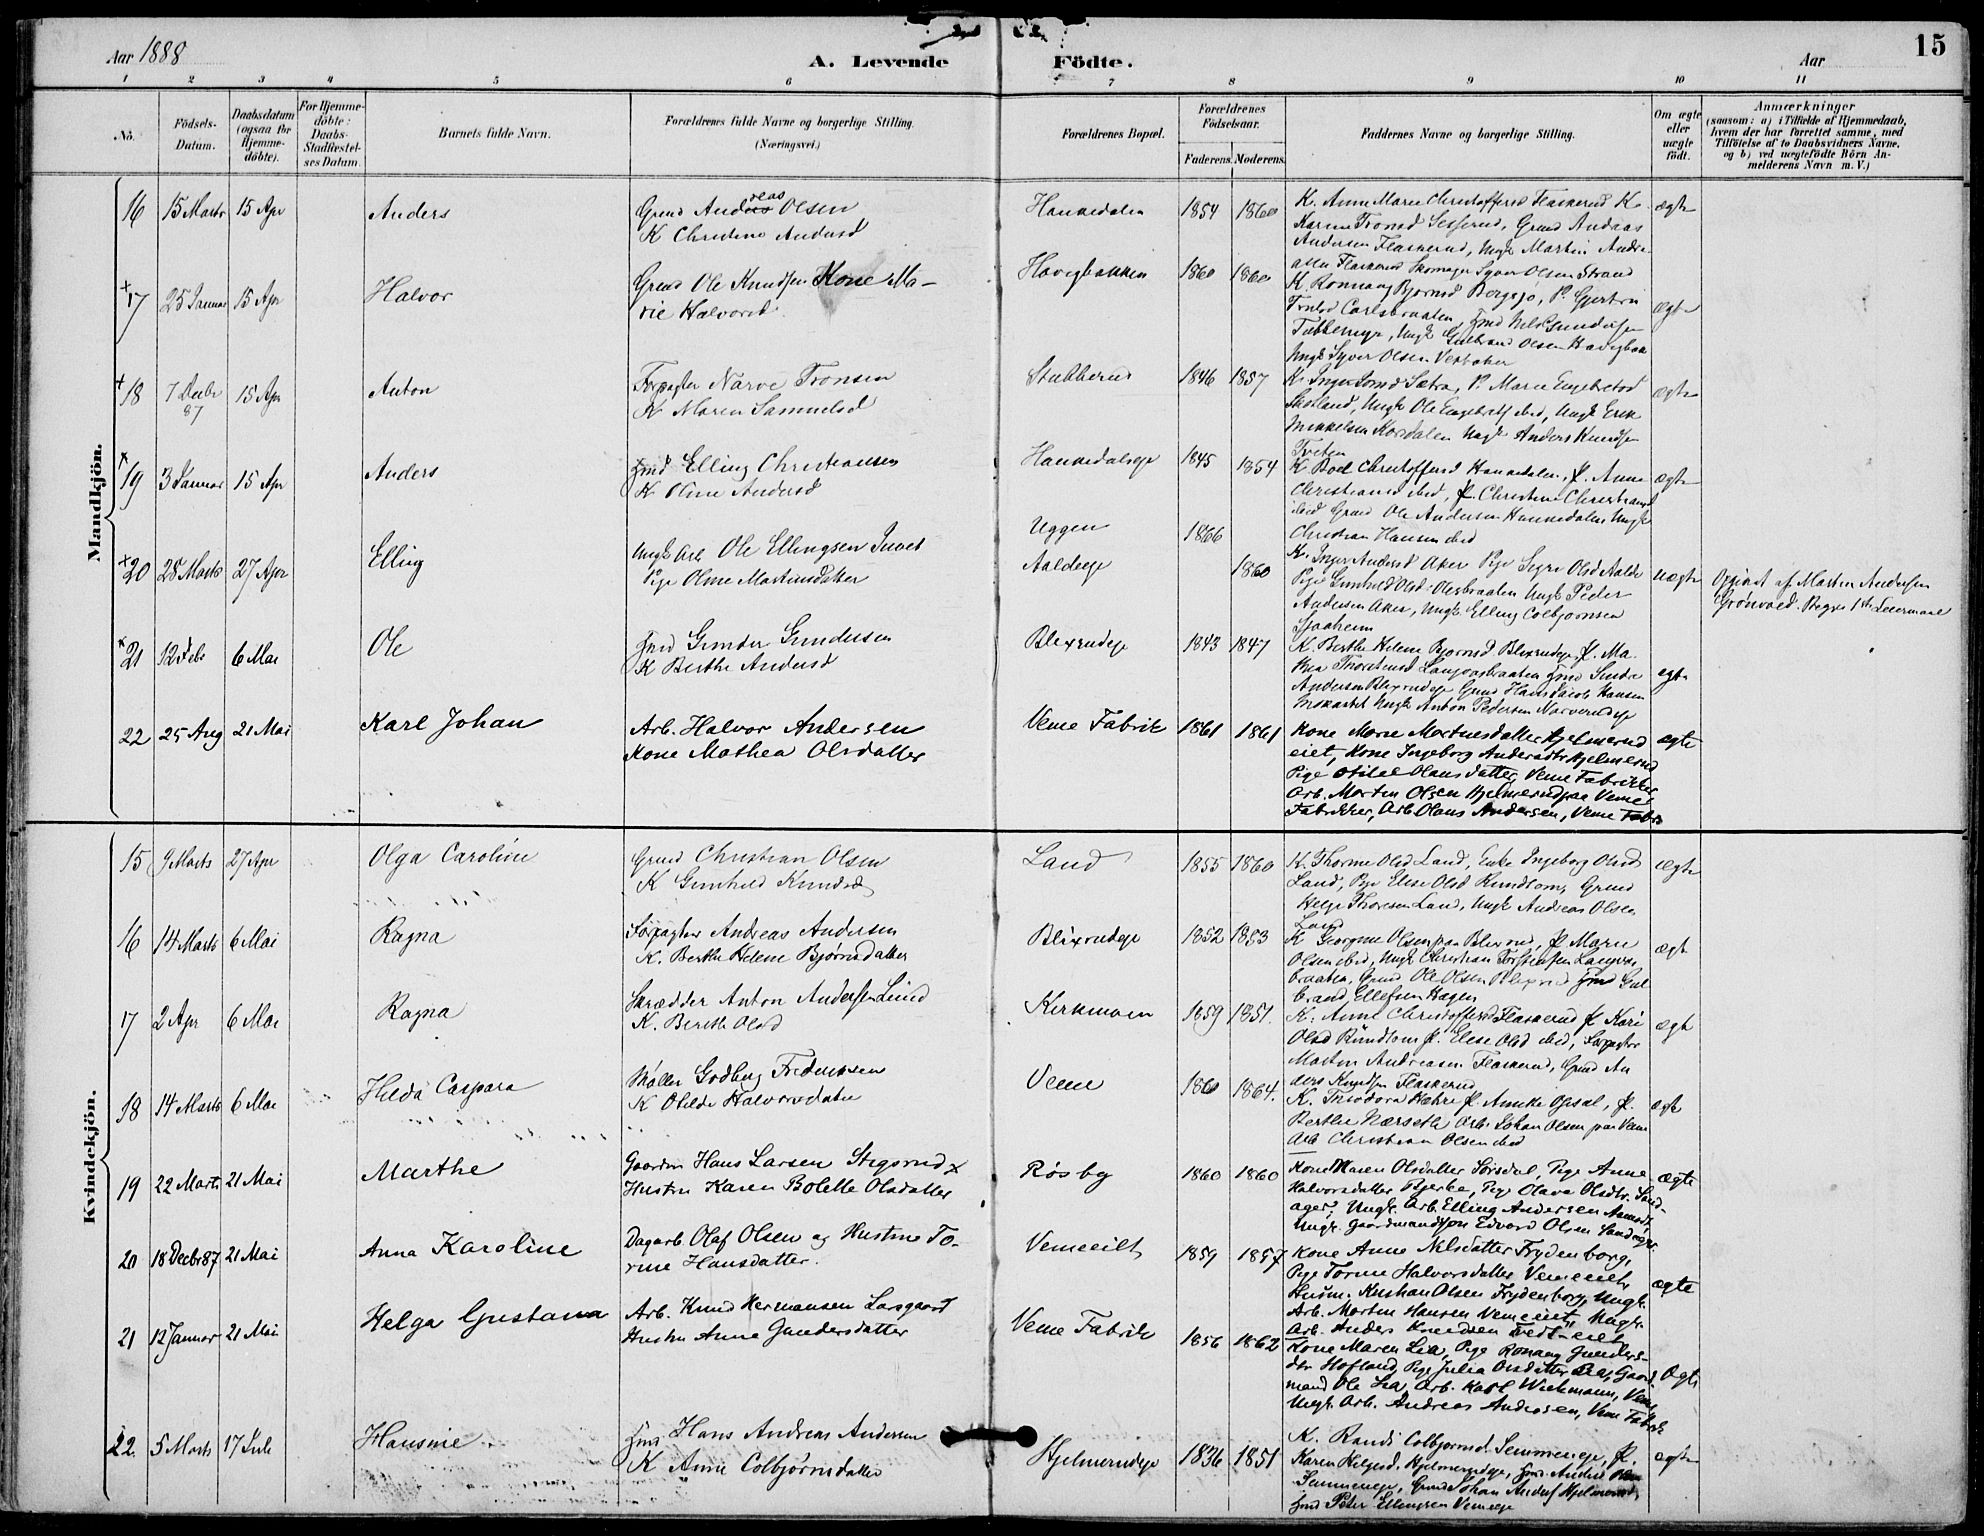 Aar 1888
A. Levende Födte.
Aar
15
1 2 3 4 5 6 7 8 9 10 11
No.
Födsels-Datum.
Daabsdatum (ogsaa for Hjemme-döbte).
For Hjemme-döbte: Daabs-Stadfæstel-ses Datum.
Barnets fulde Navn.
Forældrenes fulde Navne og borgerlige Stilling. (Næringsvei.)
Forældrenes Bopæl.
Forældrenes Födselsaar.
Faderens. Moderens.
Faddernes Navne og borgerlige Stilling.
Om ægte eller uægte födt.
Anmærkninger
(saasom: a) i Tilfælde af Hjemmedaab, hvem der har forrettet samme, med Tilföielse af to Daabsvidners Navne, og b) ved uægtefödte Börn An-melderens Navn m. V.)
Mandkjön.
16 15 Marts 15 Apr Anders
Grmd Andreas Olsen
K Christine Andersd
Hankedalen 1854 1860
K. Anne Marie Christoffersd Flaskerud K.
Karen Tronsd Grmd Andreas
Andersen Flaskerud, Ungk Martin Andre-
asen Flaskerud Skomager Syver Olsen Strand
ægte
17 25 Januar 15 Apr Halvor
Grmd Ole Knudsen Kone Ma-
rie Halvorsd
Havigbakken 1860 1860
K Ronnaug Bjornsd Bergsjø, P. Gjertru
Carlsbraaten, Hmd Nils Gundersen
Ungk Gulbrand Olsen Havigbak
Ungk Syver Olsen
ægte
18 7 Decbr 87 15 Apr Anton
Forpagter Narve Tronsen
K Maren Samuelsd
Stubberud 1846 1857
K. Inger Sætra, P. Marie Engebretsd
Ungk Ole Engebretsen ibid, Ungk Erik
Mikkelsen Korsdalen Ungk Anders Knudsen
Tveten
ægte
19 3 Januar 15 Apr Anders
Hmd Elling Christiansen
K Oline Andersd
Hankedalseje 1845 1854
K Boel Christoffersd Hankedalen, P. Anne
Christiansd ibid, P. Christine Christiansd
ibid Grmd Ole Andersen Hankedalen Ungk
Christian Hansen ibid
ægte
20 28 Marts 27 Apr Elling
Ungk Arb Ole Ellingsen Juvet
Pige Oline Martinsdatter
Uggen 1866
Aaldseje 1860
K. Inger Andersd Aker Pige Sigri Olsd Aalde
Pige Gunhild Olsd Olesbraaten Ungk Peder
Andersen Aker, Ungk Elling Colbjornsen
Sjaaheim
uægte
Opgivet af Martin Andersen
Grönvold. Begges 1ste Leiermaal
21 12 Febr 6 Mai Ole
Hmd Gunder Gundersen
K Berthe Andersd
Blixrudeje 1843 1847
K. Berthe Helene Bjornsd Blixrudeje P. Ma-
Thorstensd Langesbraaten Hmd
Andersen Blixrudeje Grmd Hans Jacob Hansen
Ungk Anton Pedersen Narverudeje
ægte
22 25 Aug 21 Mai Karl Johan
Arb. Halvor Andersen
Kone Mathea Olsdatter
Veme Fabrik 1861 1861
Kone Marie Mortensdatter Hjelmerud
eiet, Kone Ingeborg Andersdtr Hjelmerud
Pige Otilie Olausdatter, Veme Fabrikker
Arb. Morten Olsen Hjelmerud paa Veme
Fabrikker, Arb. Olaus Andersen, Veme Fabr.
ægte
Kvindekjön.
15 9 Marts 27 Apr Olga Caroline
Grmd Christian Olsen
K Gunhild Knudsd
Land 1855 1860
K. Thorine Olsd Land, Enke Ingeborg Olsd
Land, Pige Elise Olsd Rundtom, Grmd
Helge Thoresen Land, Ungk Andreas Olsen
Land
ægte
16 14 Marts 6 Mai Ragna
Forpagter Andreas Andersen
K. Berthe Helene Bjørnsdatter
Blixrudeje 1852 1853
K Georgine Olsen paa Blixrud, P Marie
Olsen ibid, Ungk Christian Torstensen Langes-
braaten, Grmd Ole Olsen Blixrud Hmd Gul
brand Ellefsen Hagen
ægt
17 2 Apr 6 Mai Ragna
Skrædder Anton Andersen Lund
K. Berthe Olsd
Kirkmoen 1859 1851.
K. Anne Christoffersd Flaskerud P Kari
Olsd Rundtom P. Elise Olsd ibid, Forpagter
Martin Andreasen Flaskerud, Grmd An
ders Knudsen Flaskerud
ægt
18 14 Marts 6 Mai Hilda Caspara
Møller Godberg Frederiksen
K Otilde Halvorsdatter
Veme 1860 1864.
K. Theodora Hæhre P. Annike Opsal, P.
Berthe Nærseth Arb Johan Olsen paa Veme
Arb Christian Olsen ibid
ægte
19 22 Marts 21 Mai Marthe
Gaardm Hans Larsen Stegsrud
Hustru Karen Bolette Olsdatter
Røsby 1860 1860
Kone Maren Olsdatter Sørsdal, Pige Anne
Halvorsdatter Bjerke, Pige Olava Olsdtr. Sand-
ager, Ungk. Arb. Elling Andersen
Ungk. Gaardmandssøn Edvard Olsen Sandager.
ægte
20 18 Decbr 87 21 Mai Anna Karoline
Dagarb. Olaf Olsen og Hustru To-
rine Hansdatter.
Vemeeiet 1859 1857
Kone Anne Nilsdatter Frydenborg,
Pige Torine Halvorsdatter Vemeeiet,
Husm. Kristian Olsen Frydenborg, Ungk.
Arb. Morten Hansen Vemeeiet, Ungk.
Arb. Anders Knudsen Tvedt-eiet
ægte
21 12 Januar 21 Mai Helga Gustava
Arb. Knud Hermansen Larsgaard
Hustru Anne Gundersdatter
Veme Fabrik 1856 1862
Kone Maren Lia, Pige Ronaug Gunders-
dtr Hofland, Pige Julia Olsdatter Lia, Gaard
mand Ole Lia, Arb. Karl Wichmann, Veme
Ungk. Arb. Andreas Andersen, Veme Fabrik
Ægte
22. 5 Marts 17 Juli Hansine
Hmd Hans Andreas Andersen
K Anne Colbjørnsdatter
Hjelmerudeje 1836 1851
K. Randi Colbjornsd. Semmeneje, P.
Karen Helgesd. Hjelmerudeje, Hmd Anders
Semmeneje, Grmd Johan Anders Hjelmerud,
Hmd Peter Ellingsen Vemeeje
ægte